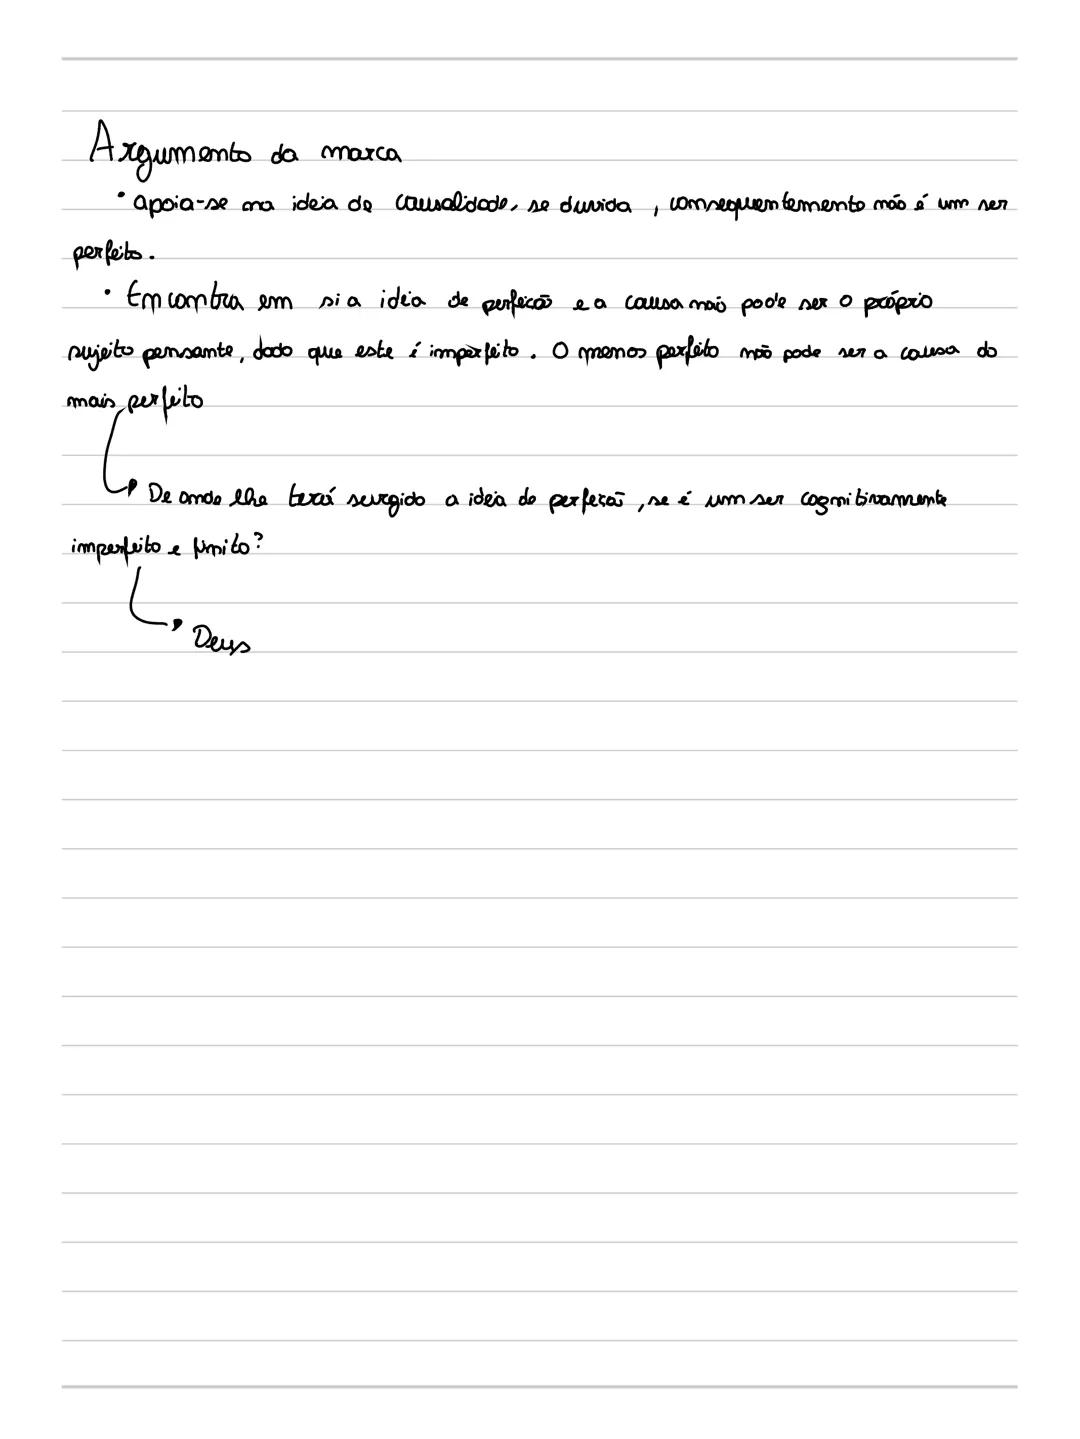 Argumento da marca
• apoia-se na ideia de causalidade, se duvida, consequentemente não é um ser
perfeito.
• Encontra em si a idéia de perfeição e a causa não pode ser o próprio
sujeito pensante, dado que este é imperfeito. O menos perfeito não pode ser a causa do
mais perfeito
De onde lhe terá surgido a ideia de perfeição, se é um ser cognitivamente
imperfeito e finito?
Deus